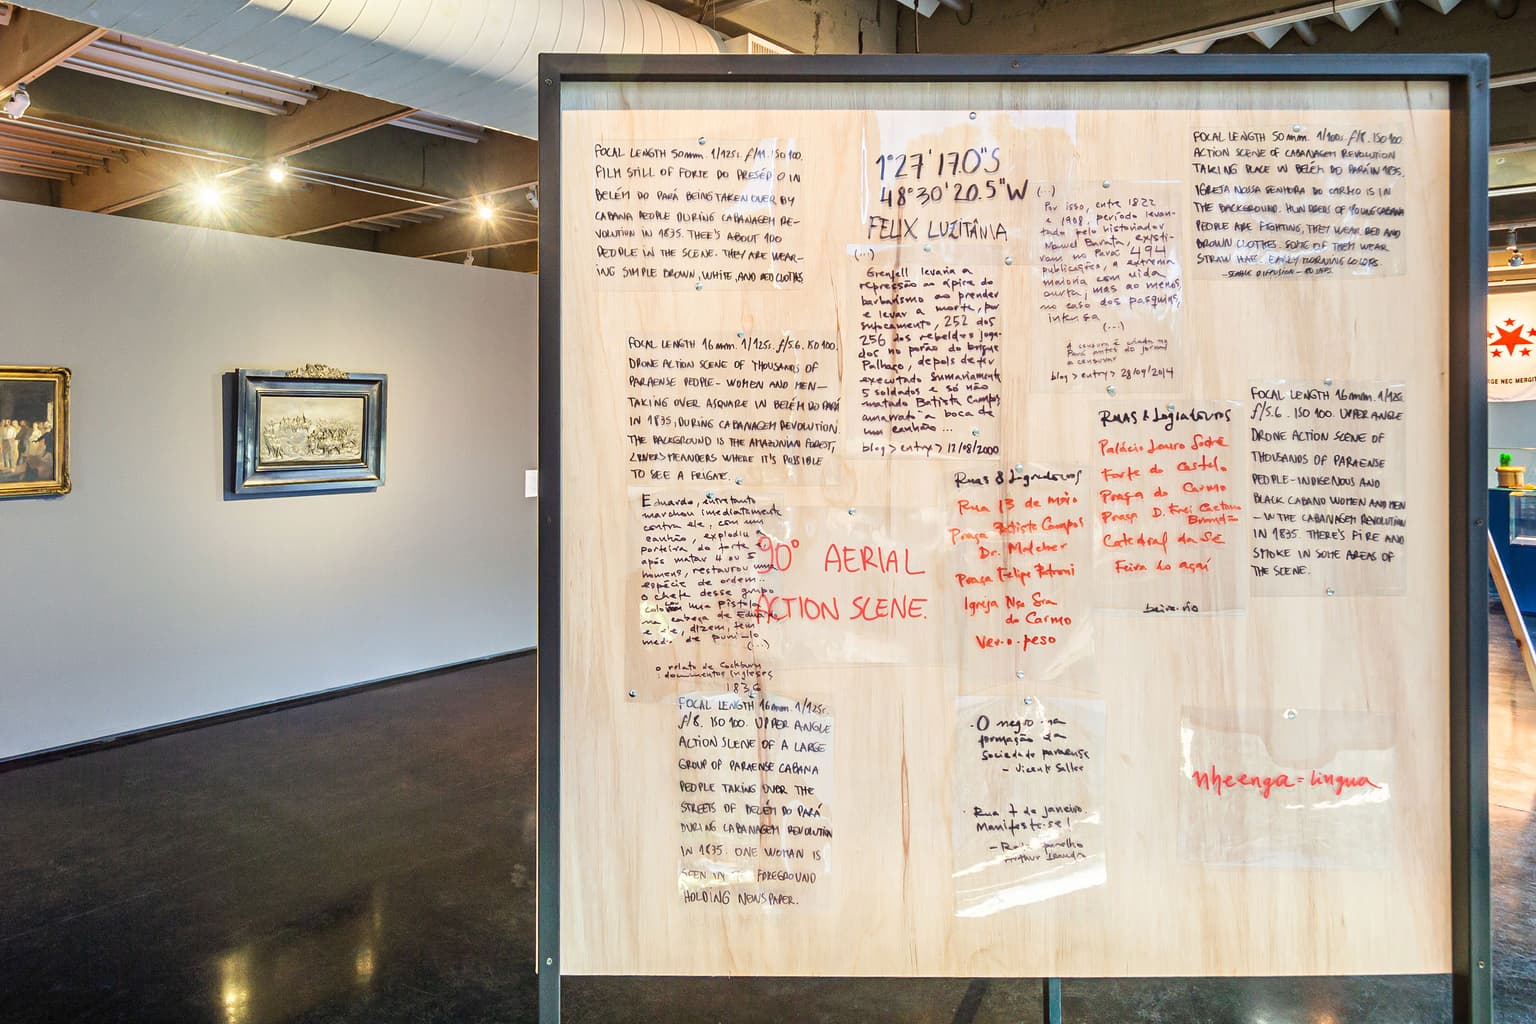 FOCAL LENGTH 50mm. 1/125s. f/11. ISO 100.
FILM STILL OF FORTE DO PRESÉPIO IN
BELÉM DO PARÁ BEING TAKEN OVER BY
CABANA PEOPLE DURING CABANAGEM RE-
VOLUTION IN 1835. THEE'S ABOUT 100
PEOPLE IN THE SCENE. THEY ARE WEAR-
ING SIMPLE BROWN, WHITE, AND RED CLOTHES
FOCAL LENGTH 16mm. 1/125s. f/5.6. ISO 100.
DRONE ACTION SCENE OF THOUSANDS OF
PARAENSE PEOPLE - WOMEN AND MEN -
TAKING OVER A SQUARE IN BELÉM DO PARÁ
IN 1835, DURING CABANAGEM REVOLUTION.
THE BACKGROUND IS THE AMAZONIAN FOREST,
MEANDERS WHERE IT'S POSSIBLE
TO SEE A FRIGATE.
Eduardo, entretanto
marchou imediatamente
contra ele, com um
canhão, explodiu a
porteira do forte e
após matar 4 ou 5
homens, restaurou uma
espécie de ordem...
O chefe desse grupo
colocou uma pistola
na cabeça de Eduardo
e ele, dizem, tem
medo de puni-lo
(...)
o relato de Cockburn
: documentos ingleses
1836
FOCAL LENGTH 16mm. 1/125s.
f/8. ISO 100. UPPER ANGLE
ACTION SCENE OF A LARGE
GROUP OF PARAENSE CABANA
PEOPLE TAKING OVER THE
STREETS OF BELÉM DO PARÁ
DURING CABANAGEM REVOLUTION
IN 1835. ONE WOMAN IS
SEEN IN THE FOREGROUND
HOLDING NEWSPAPER.
90° AERIAL
ACTION SCENE.
1°27'17.0"S
48°30'20.5"W
FELIX LUZITÂNIA
(...)
Grenfell levaria a
repressão ao ápice do
barbarismo ao prender
e levar a morte, por
sufocamento, 252 dos
256 dos rebeldes joga-
dos no porão do brigue
Palhaço, depois de ter
executado sumariamente
5 soldados e só não
matado Batista Campos
amarrado a boca de
um canhão...
blog > entry > 12/08/2000
Ruas & Logradouros
Rua 13 de maio
Praça Batista Campos
Dr. Malcher
Praça Felipe Patroni
Igreja Nsa Sra
do Carmo
Ver-o-peso
· O negro na
formação da
Sociedade paraense
- Vicente Salles
· Rua 7 de janeiro.
Manifeste-se!
(...)
Por isso, entre 1822
e 1908, período levan-
tado pelo historiador
Manuel Barata, existi-
ram no Pará 494
publicações, a extrema
maioria com vida
curta, mas ao menos,
no caso dos pasquins,
intensa
(...)
A censura é criada no
Pará antes do jornal
a censurar
blog > entry > 28/09/2014
Ruas & Logradouros
Palácio Lauro Sodré
Forte do Castelo
Praça do Carmo
Praça D. Frei Caetano
Brandão
Catedral da Sé
Feira do açaí
beira-rio
FOCAL LENGTH 50mm. 1/100s. f/8. ISO 100.
ACTION SCENE OF CABANAGEM REVOLUTION
TAKING PLACE IN BELÉM DO PARÁ IN 1835.
IGREJA NOSSA SENHORA DO CARMO IS IN
THE BACKGROUND. HUNDREDS OF YOUNG CABANA
PEOPLE ARE FIGHTING, THEY WEAR RED AND
BROWN CLOTHES. SOME OF THEM WEAR
STRAW HATS. EARLY MORNING COLORS.
- STABLE DIFFUSION -
FOCAL LENGTH 16mm. 1/125s.
f/5.6. ISO 100. UPPER ANGLE
DRONE ACTION SCENE OF
THOUSANDS OF PARAENSE
PEOPLE - INDIGENOUS AND
BLACK CABANO WOMEN AND MEN
- IN THE CABANAGEM REVOLUTION
IN 1835. THERE'S FIRE AND
SMOKE IN SOME AREAS OF
THE SCENE.
nheenga = língua
NEC MERGIT